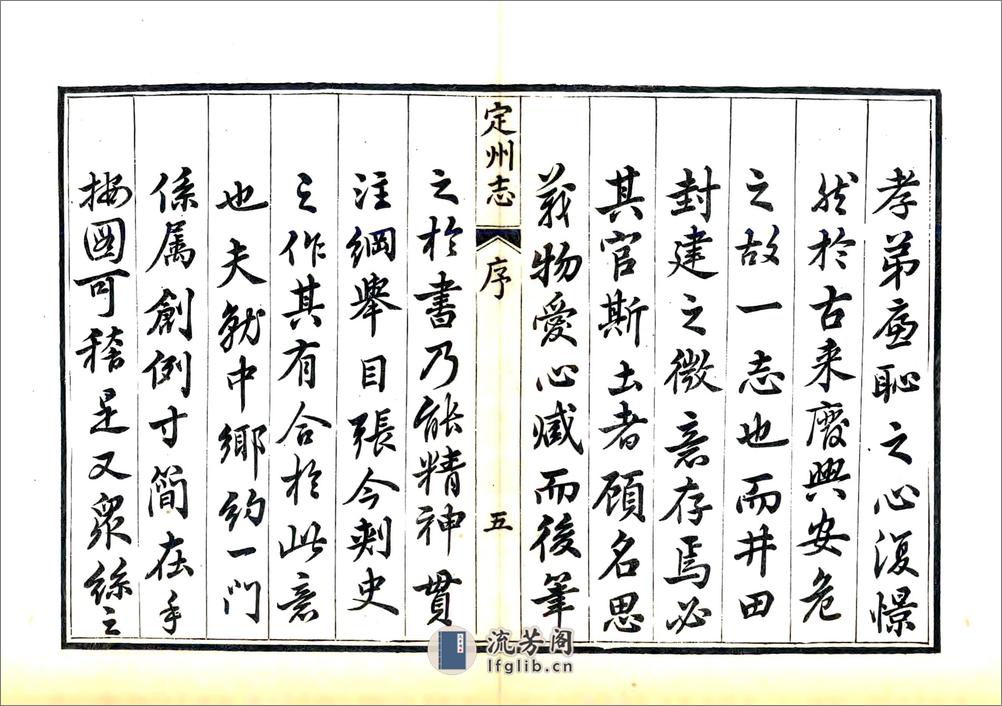 孝弟廉恥之心復憬
然於古来廢興安危
之故一志也而井田
封建之微意存焉必
其官斯土者顧名思
義物愛心臧而後筆
定州志
序
五
之於書乃能精神貫
注綱舉目張今刺史
之作其有合於此意
也夫就中鄉約一門
係属創例寸簡在手
按圖可稽是又眾綜之
流芳阁
lfglib.cn